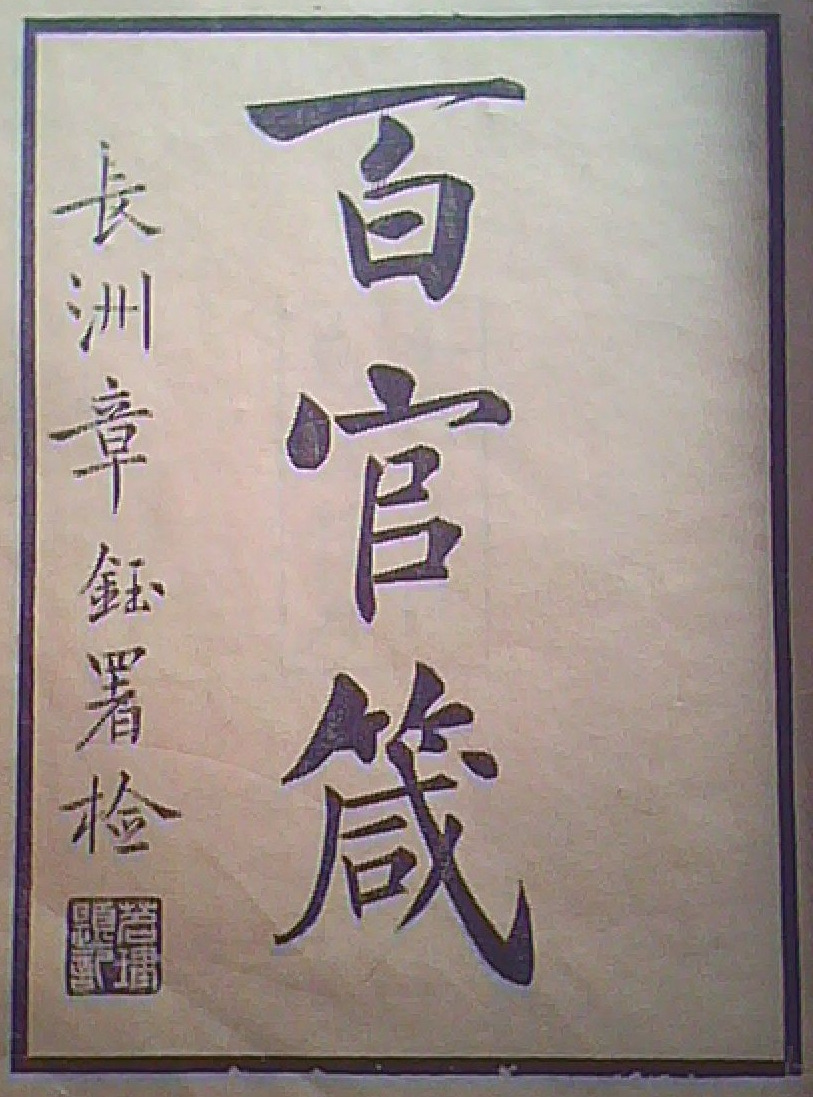 百官箴
長洲章鈺署检